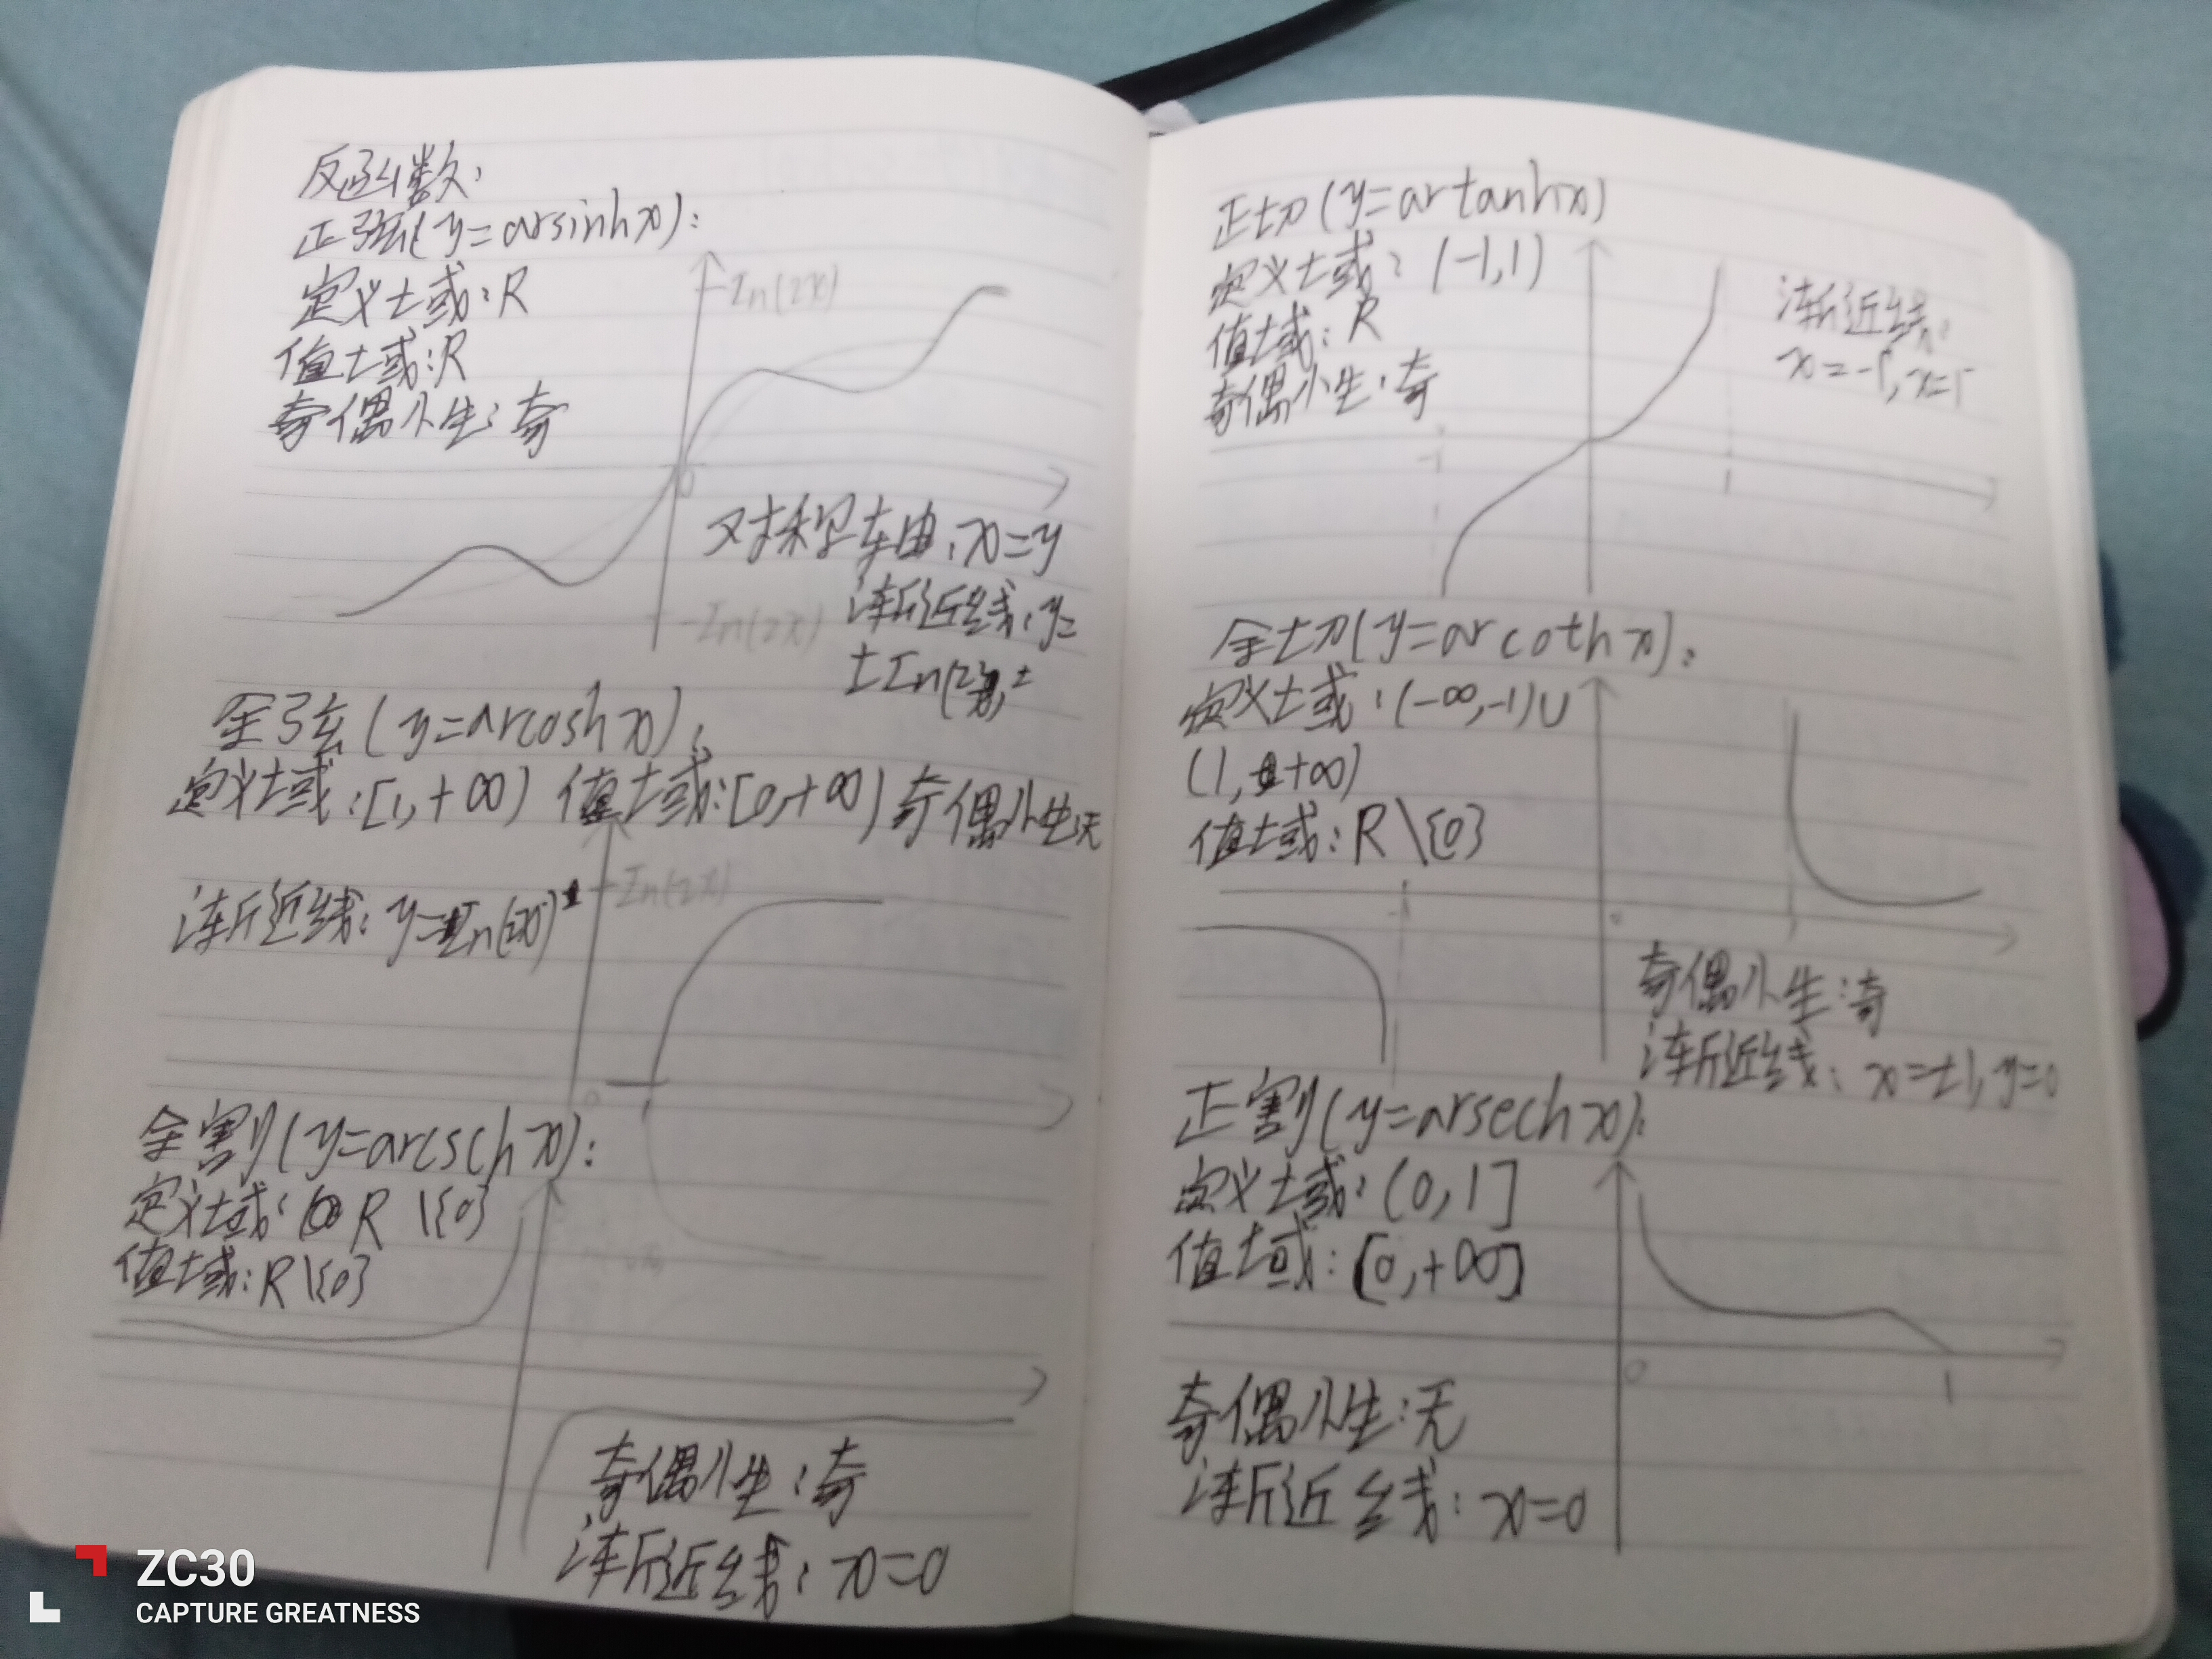 反函数:
正弦(y=arsinhx):
定义域:R
值域:R
奇偶性:奇
In(2x)
0
对称轴:x=y
-In(2x)
渐近线:y=
±In(2x)
余弦(y=arcoshx):
定义域:[1,+∞) 值域:[0,+∞) 奇偶性无
渐近线:y=In(2x)
In(2x)
0
1
余割(y=arcschx):
定义域:R\{0}
值域:R\{0}
奇偶性:奇
渐近线:x=0
正切(y=artanhx)
定义域:(-1,1)
值域:R
奇偶性:奇
渐近线:
x=-1,x=1
-1
1
余切(y=arcothx):
定义域:(-∞,-1)∪
(1,+∞)
值域:R\{0}
-1
0
1
奇偶性:奇
渐近线:x=±1,y=0
正割(y=arsechx):
定义域:(0,1]
值域:[0,+∞]
0
1
奇偶性:无
渐近线:x=0
ZC30
CAPTURE GREATNESS